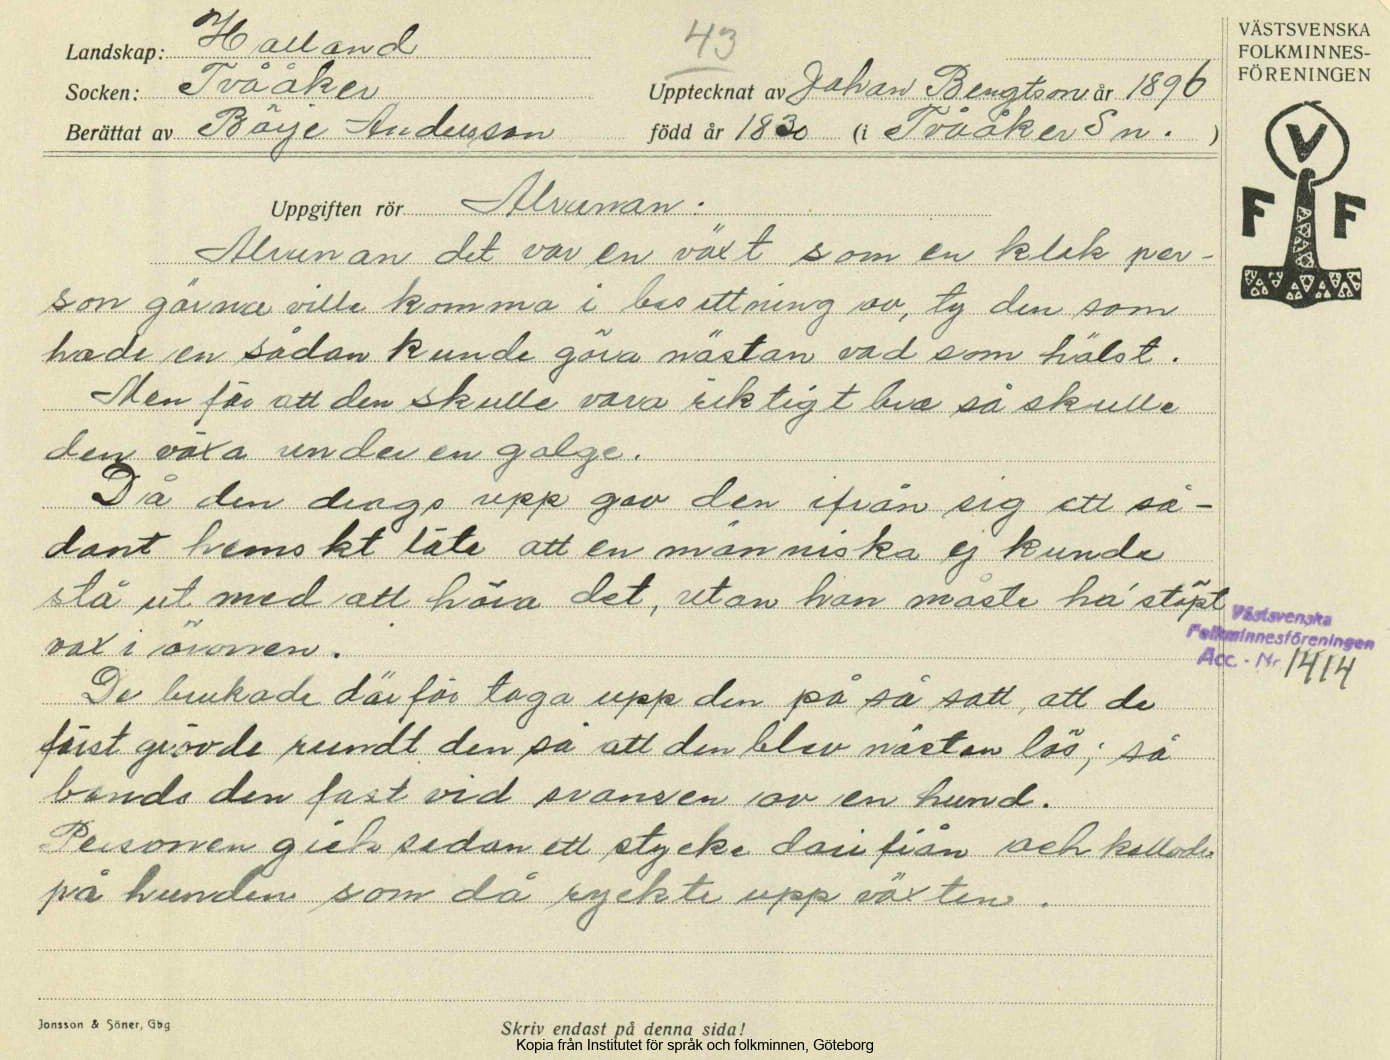 43
Landskap: Halland
Socken: Tvååker
Upptecknat av Johan Bengtson år 1896
Berättat av Börje Andersson född år 1830 (i Tvååker Sn. )
VÄSTSVENSKA
FOLKMINNES-
FÖRENINGEN
V
F F
Uppgiften rör Alrunan.
Alrunan det var en växt som en klok per-
son gärna ville komma i besittning av, ty den som
hade en sådan kunde göra nästan vad som hälst.
Men för att den skulle vara riktigt bra så skulle
den växa under en galge.
Då den drags upp gav den ifrån sig ett så-
dant hemskt läte att en människa ej kunde
stå ut med att höra det, utan han måste ha' stöpt
vax i öronen.
De brukade därför taga upp den på så satt, att de
först grövde rundt den så att den blev nästan lös; så
bands den fast vid svansen av en hund.
Personen gick sedan ett stycke darifrån och kallade
på hunden som då ryckte upp växten.
Västsvenska
Folkminnesföreningen
Acc. - Nr 1414
Jonsson & Söner, Gbg
Skriv endast på denna sida!
Kopia från Institutet för språk och folkminnen, Göteborg